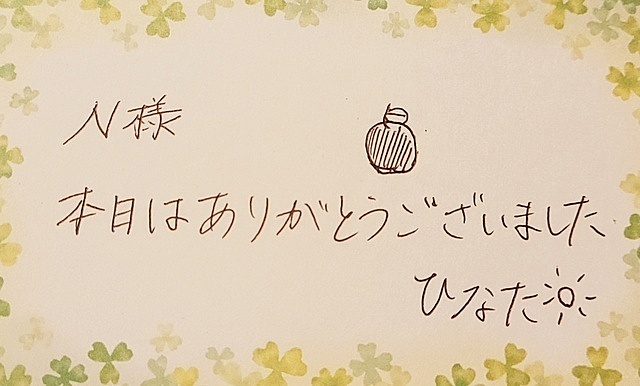 N様
本日はありがとうございました
ひなた